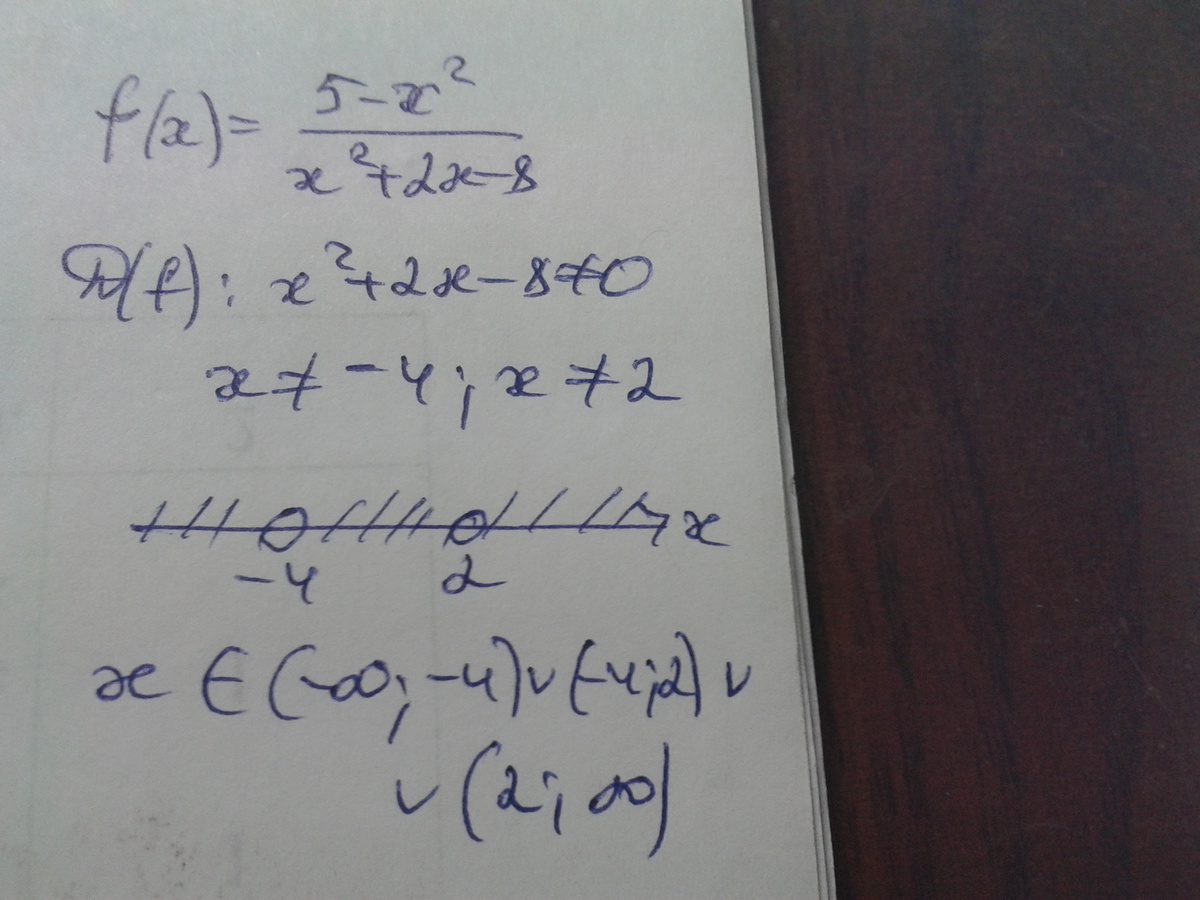 f(x) = (5-x²)/(x²+2x-8)
D(f): x²+2x-8≠0
x≠-4; x≠2
x
-4 2
x ∈ (-∞; -4) ∪ (-4; 2) ∪
∪ (2; ∞)